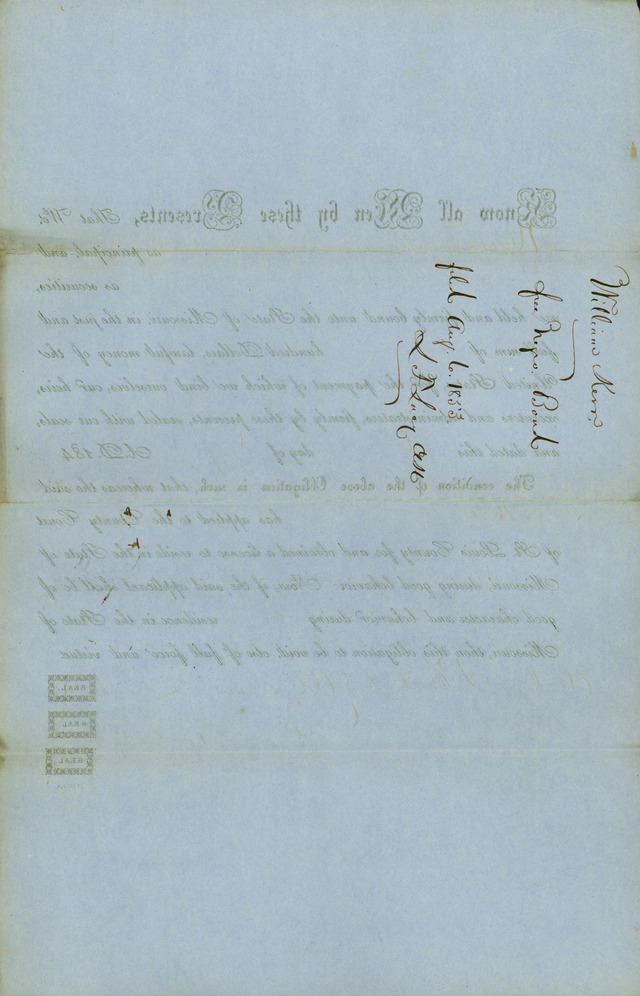 William Kerr
free Negro Bond
filed Aug 6. 1853
Know all Men by these Presents, That We
as principal, and
as securities,
are held and firmly bound unto the State of Missouri, in the just and
full sum of hundred Dollars, lawful money of the
United States, the payment of which we bind ourselves, our heirs,
executors and administrators, firmly by these presents, sealed with our seals,
and dated this day of A.D. 184
The condition of the above Obligation is such, that whereas the said
has applied to the County Court
of St. Louis County for and obtained a license to reside in the State of
Missouri, during good behavior. Now, if the said applicant shall be of
good character and behavior during residence in the State of
Missouri, then this obligation to be void, else of full force and virtue.
SEAL.
SEAL
SEAL